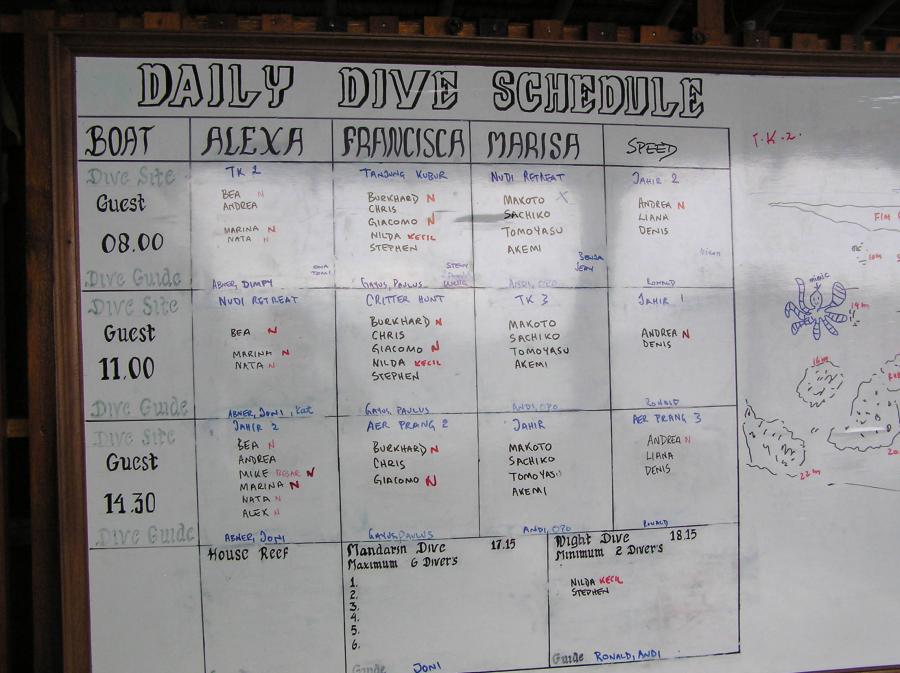 DAILY DIVE SCHEDULE
BOAT ALEXA FRANCISCA MARISA SPEED
Dive Site TK 2 TANJUNG KUBUR NUDI RETREAT JAHIR 2
Guest
08.00
BEA N
ANDREA
MARINA N
NATA N
BURKHARD N
CHRIS
GIACOMO N
NILDA KECIL
STEPHEN
MAKOTO X
SACHIKO
TOMOYASU
AKEMI
ANDREA N
LIANA
DENIS
Dive Guide ABNER, DIMPY GAYUS, PAULUS ANDI, OPO RONALD
Dive Site NUDI RETREAT CRITTER HUNT TK 3 JAHIR 1
Guest
11.00
BEA N
MARINA N
NATA N
BURKHARD N
CHRIS
GIACOMO N
NILDA KECIL
STEPHEN
MAKOTO
SACHIKO
TOMOYASU
AKEMI
ANDREA N
DENIS
Dive Guide ABNER, JONI, Kat GAYUS, PAULUS ANDI, OPO RONALD
Dive Site JAHIR 2 AER PRANG 2 JAHIR AER PRANG 3
Guest
14.30
BEA N
ANDREA
MIKE BESAR N
MARINA N
NATA N
ALEX N
BURKHARD N
CHRIS
GIACOMO N
MAKOTO
SACHIKO
TOMOYASU
AKEMI
ANDREA N
LIANA
DENIS
Dive Guide ABNER, JONI GAYUS, PAULUS ANDI, OPO RONALD
House Reef
Mandarin Dive 17.15
Maximum 6 Divers
1.
2.
3.
4.
5.
6.
Guide JONI
Night Dive 18.15
Minimum 2 Divers
NILDA KECIL
STEPHEN
Guide RONALD, ANDI
T.K.2.
mimic
14m
16m
22m